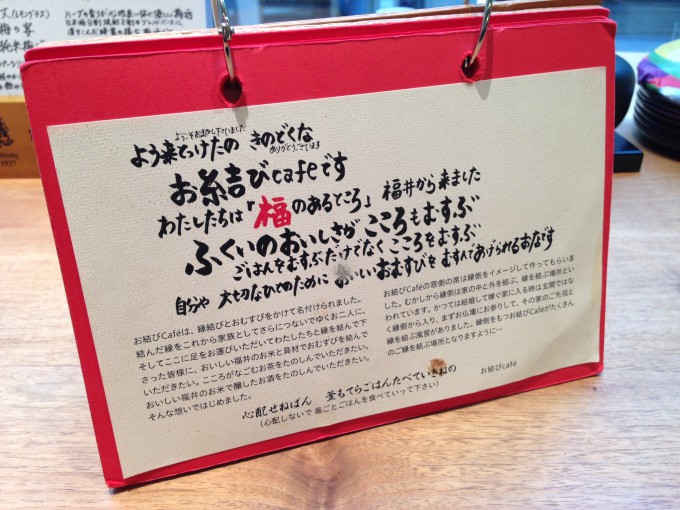 よう来とっけたの きのどくな
ようこそお越し下さいました
ありがとうございます
お糸結びcafeです
わたしたちは「福のあるところ」福井から来ました
ふくいのおいしさが こころもむすぶ
ごはんをむすぶだけでなく こころをむすぶ
自分や 大切なひとのために おいしいおむすびを むすんであげられるお店です
お結びCaféは、縁結びとおむすびをかけて名付けられました。
結んだ縁をこれから家族としてさらにつないでゆくお二人に、
そしてここに足をお運びいただいてわたしたちと縁を結んで下
さった皆様に、おいしい福井のお米と具材でおむすびを結んで
いただきたい。こころがなごむお茶をたのしんでいただきたい。
おいしい福井のお米で醸したお酒をたのしんでいただきたい。
そんな想いではじめました。
お結びCaféの窓側の席は縁側をイメージして作ってもらいま
した。むかしから縁側は家の中と外を結ぶ、縁を結ぶ場所とい
われています。かつては結婚して嫁ぐ家に入る時は玄関ではな
く縁側から入り、まずお仏壇にお参りして、その家のご先祖と
縁を結ぶ風習がありました。縁側をもつお結びCaféがたくさん
のご縁を結ぶ場所となりますように…
お結びcafé
心配せねばん 釜もてらごはんたべていきねの
（心配しないで 釜ごとごはんを食べていって下さい）